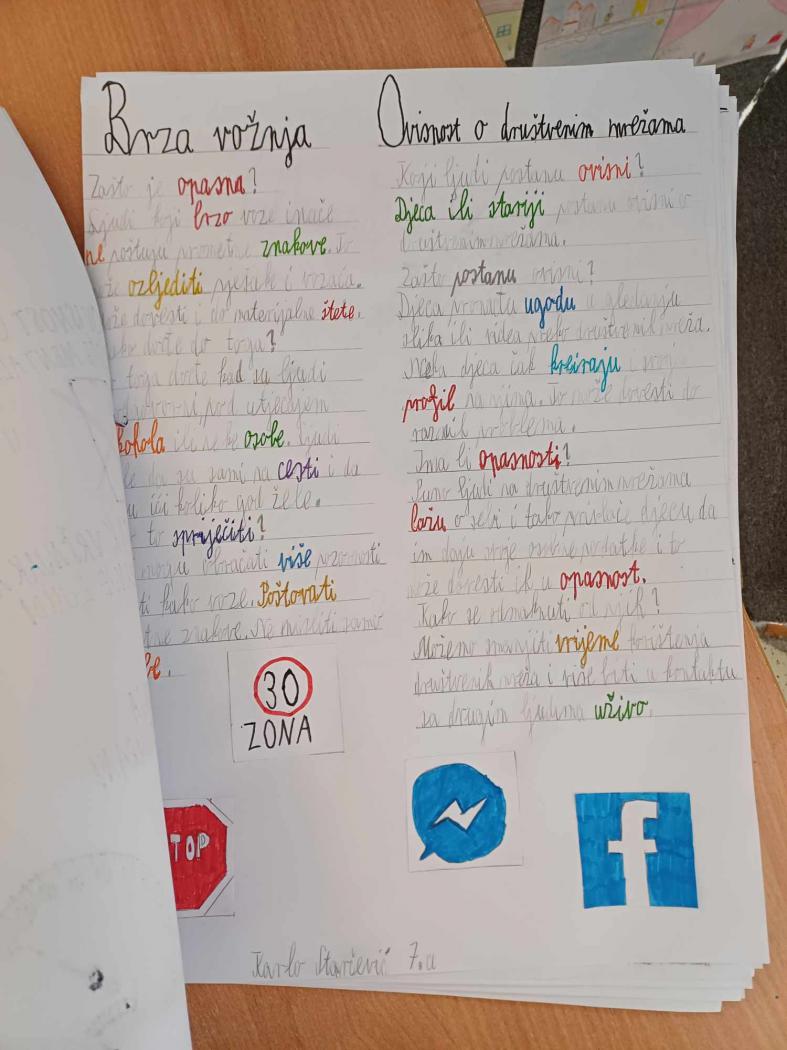 Brza vožnja
Zašto je opasna?
Ljudi koji brzo voze inače
ne poštuju prometne znakove. To
že ozljediti pješake i vozača.
že dovesti i do materijalne štete.
ako dođe do toga?
toga dođe kad su ljudi
pod utjecjem
kohola ili neke osobe. Ljudi
le da su sami na cesti i da
u ići koliko god žele.
to spriječiti?
mogu obraćati više pozornosti
ti kako voze. Poštovati
tne znakove. Ne misliti samo
be.
30
ZONA
TOP
Ovisnost o društvenim mrežama
Koji ljudi postanu ovisni?
Djeca ili stariji postanu ovisni o
društvenim mrežama.
Zašto postanu ovisni?
Djeca pronađu ugodu u gledanju
slika ili videa preko društvenih mreža.
Neka djeca čak kreiraju i svoje
profil na njima. To može dovesti do
raznih problema.
Ima li opasnosti?
Puno ljudi na društvenim mrežama
lažu o sebi i tako privlače djecu da
im daju svoje osobne podatke i to
može dovesti ih u opasnost.
Kako se odmaknuti od njih?
Možemo smanjiti vrijeme korištenja
društvenih mreža i više biti u kontaktu
sa drugim ljudima uživo.
f
Karlo Starčević 7.a